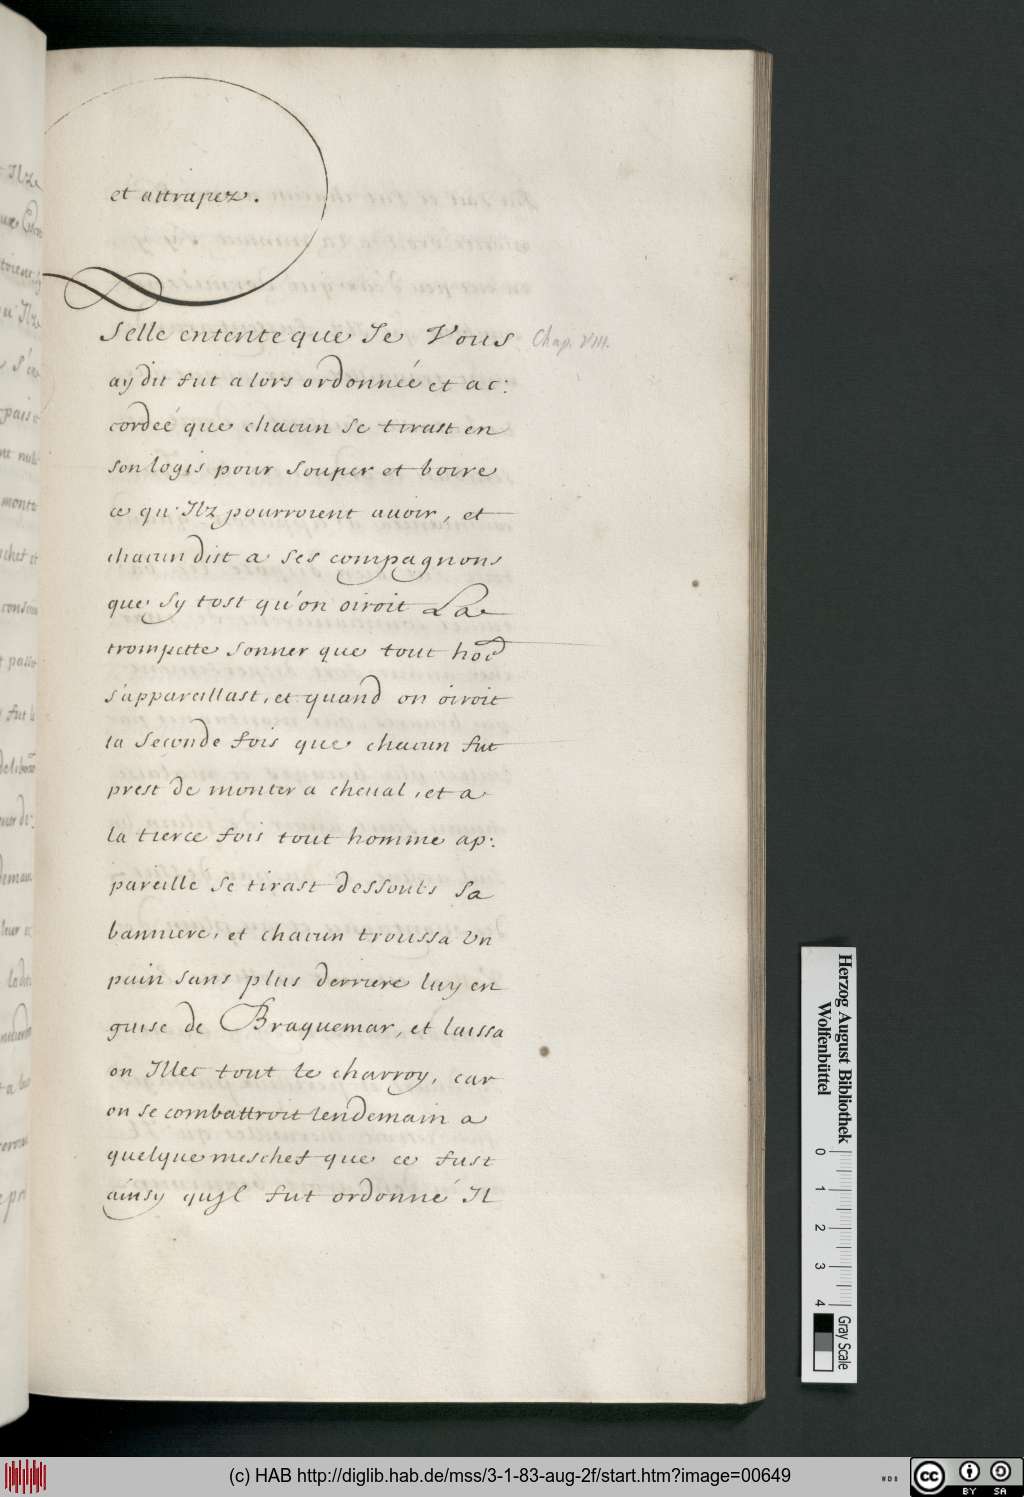 et attrapez.
Selle entente que Je Vous
Chap. VIII.
ay dit fut alors ordonnéé et ac:
cordeé que chacun se tirast en
son logis pour souper et boire
ce qu'Ilz pourroient auoir, et
chacun dist a ses compagnons
que sy tost qu'on oiroit La
trompette sonner que tout hoe
s'appareillast, et quand on oiroit
la seconde fois que chacun fut
prest de monter a cheual, et a
la tierce fois tout homme ap:
pareillé se tirast dessoubs sa
banniere, et chacun troussa Vn
pain sans plus derriere luy en
guise de Braquemar, et laissa
on Illec tout le charroy, car
on se combattroit lendemain a
quelque meschef que ce fust
ainsy qu'Jl fut ordonné Il
Herzog August Bibliothek
Wolfenbüttel
0 1 2 3 4
Gray Scale
(c) HAB http://diglib.hab.de/mss/3-1-83-aug-2f/start.htm?image=00649
WDB
cc BY SA